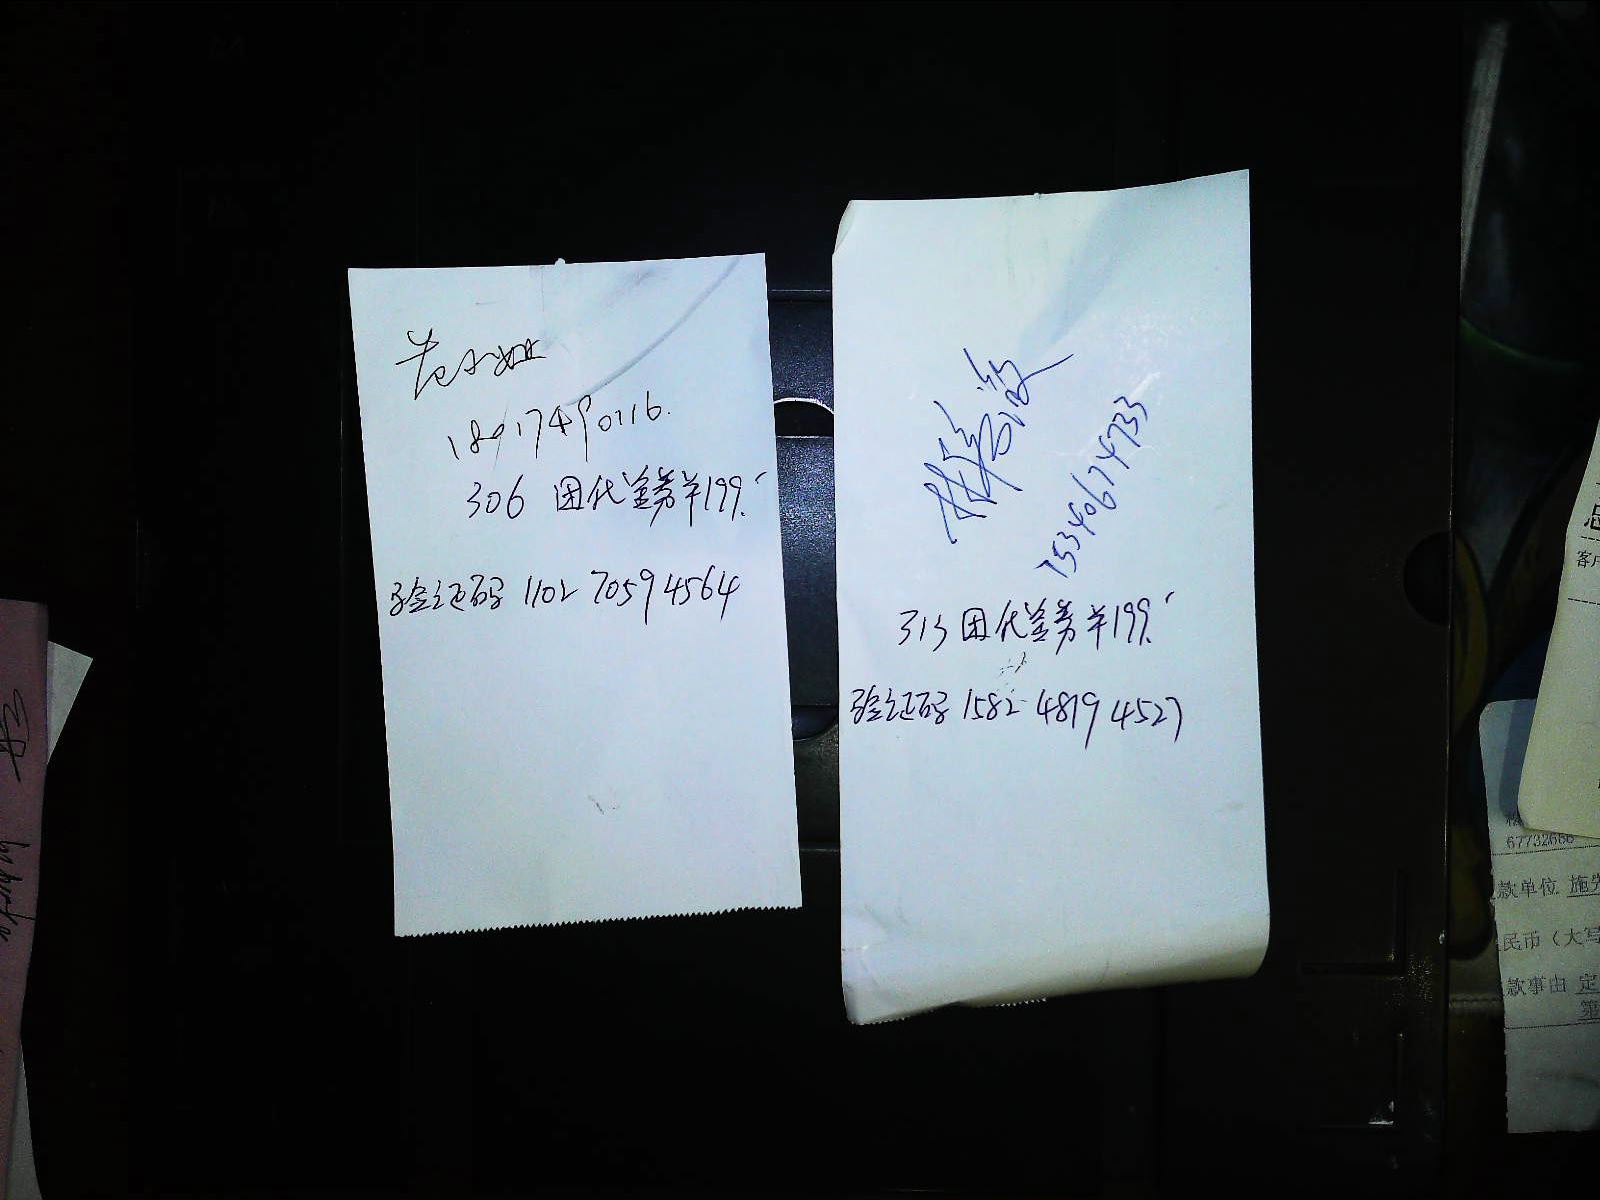 18917490116.
306 团代金券羊199.
验证码 1102 7059 4564
15340674733
313 团代金券羊199.
验证码 1582 4819 4527
客户
67732686
款单位 施
民币（大写
款事由 定
第